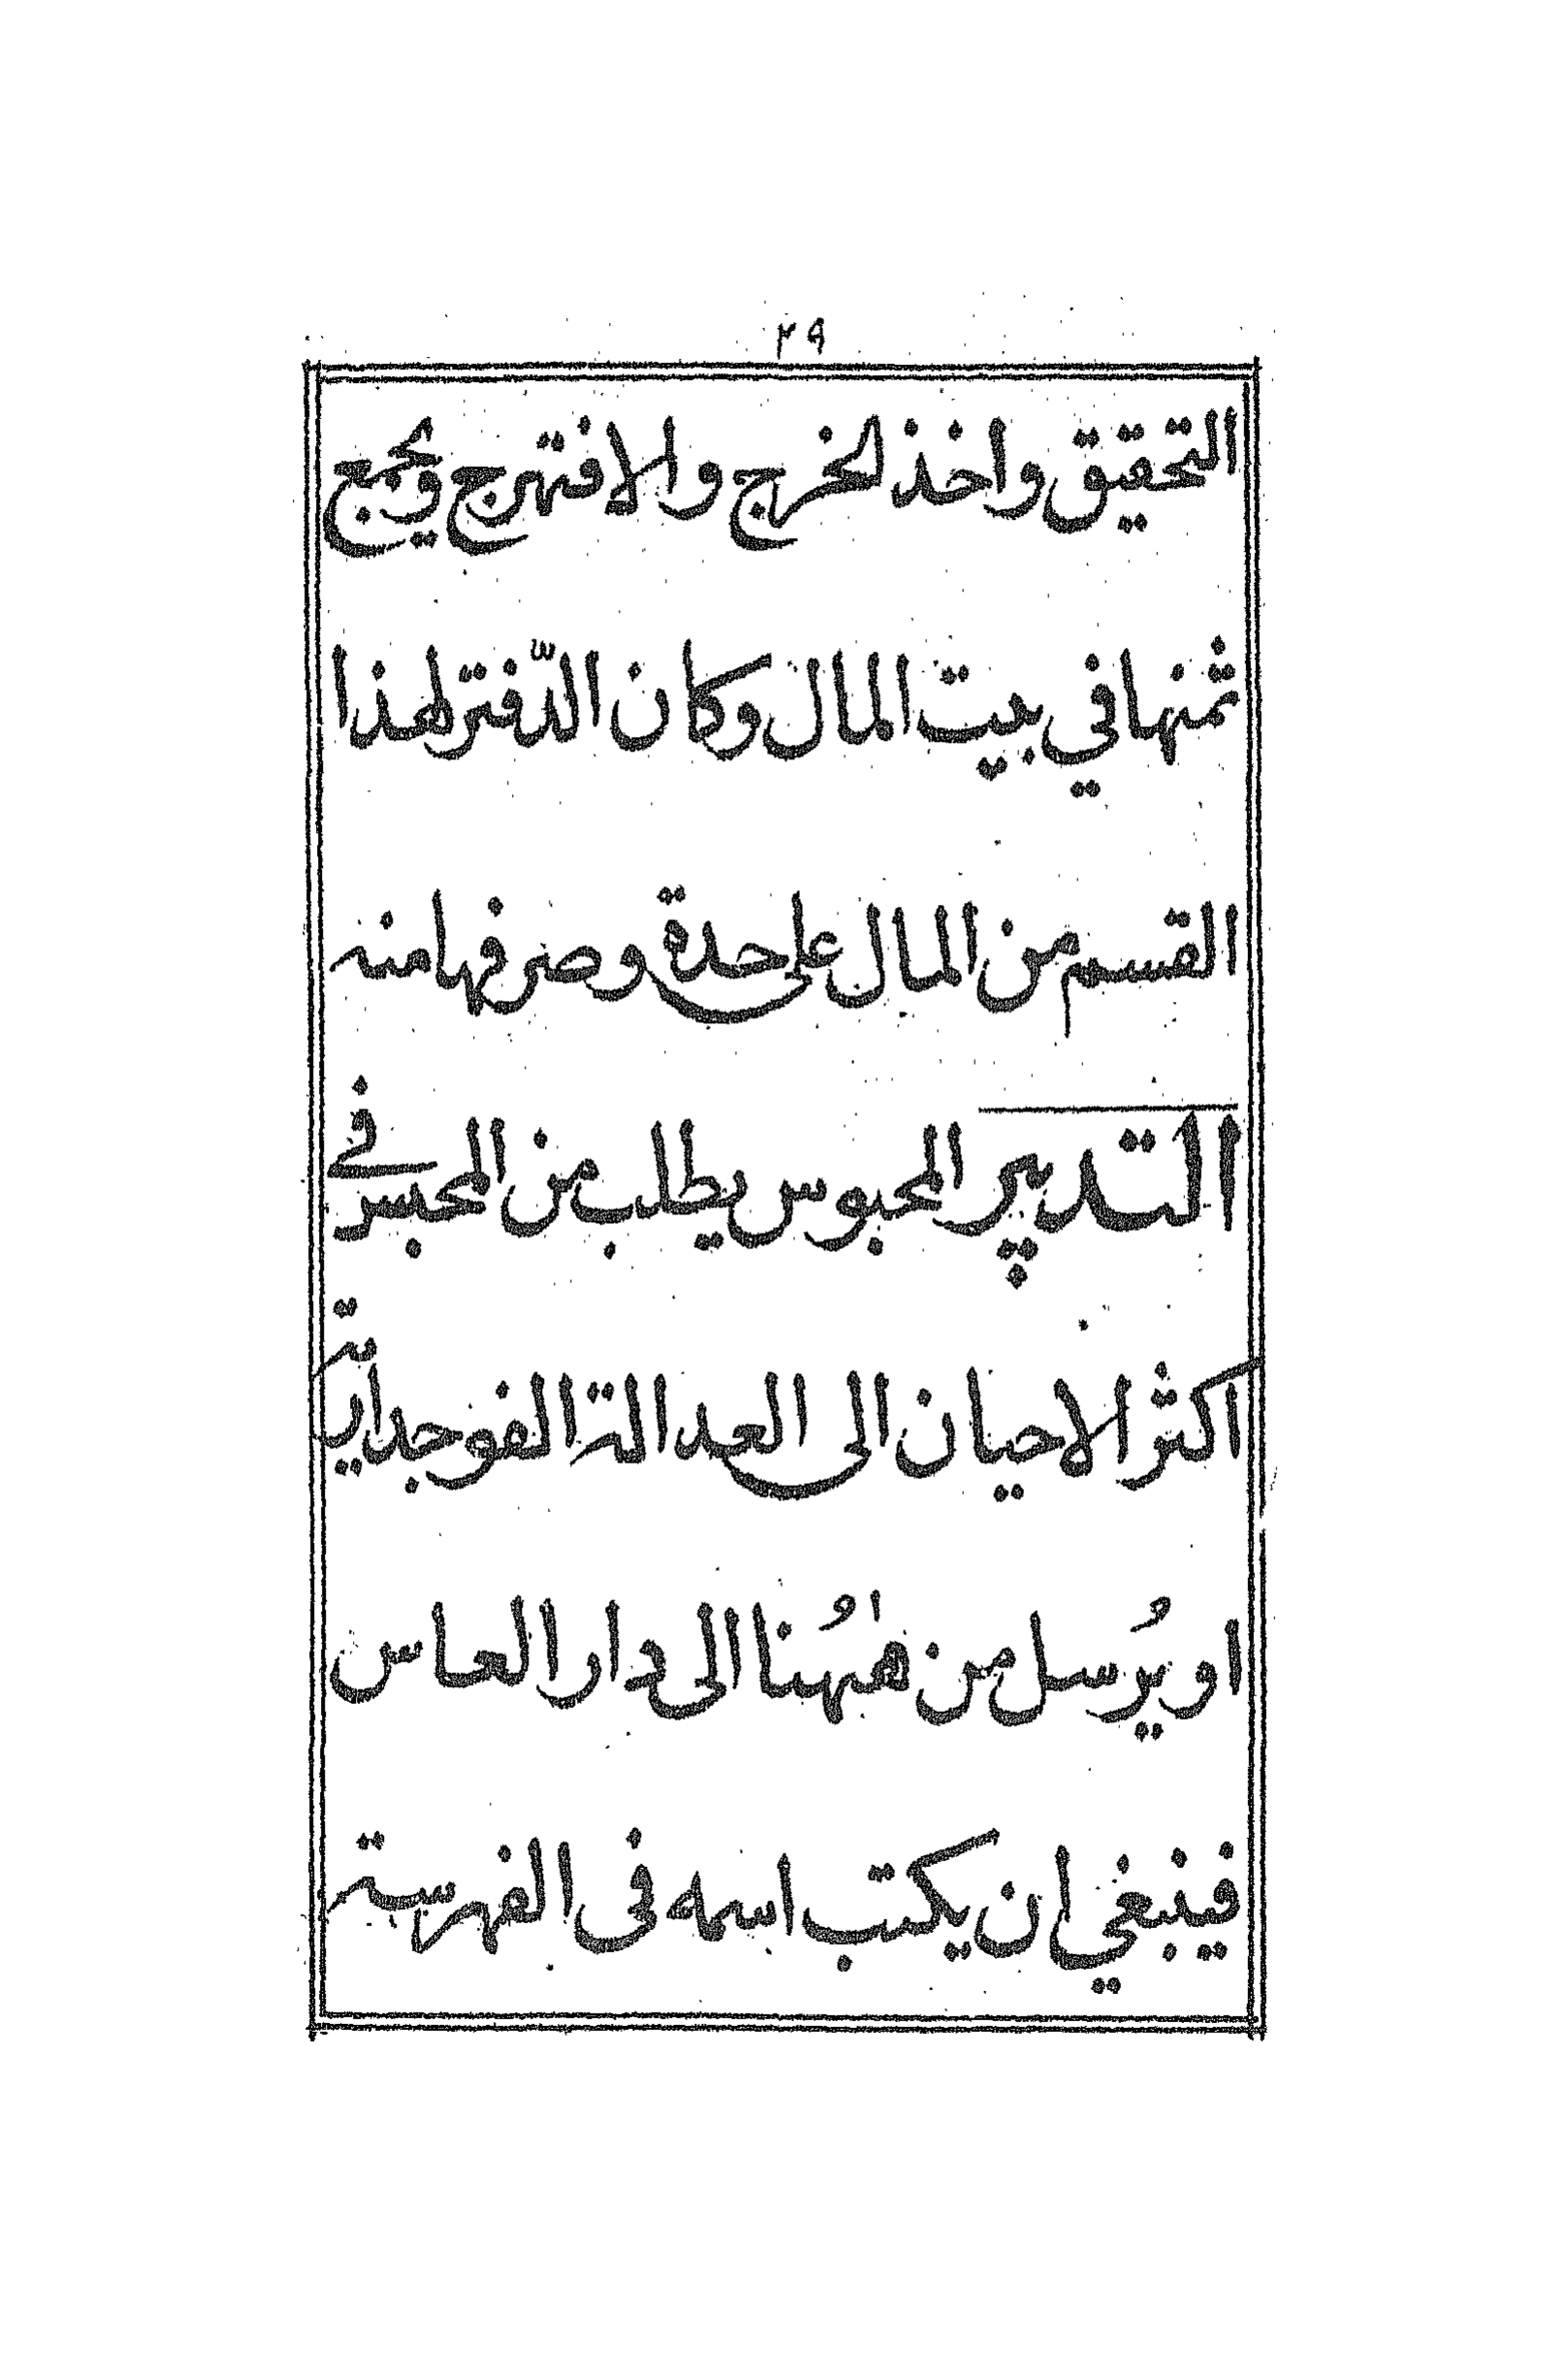 ٢٩
التحقيق واخذ الخرج والا فتهرج ويجمع
ثمنها في بيت المال وكان الدّفتر لهذا
القسم من المال على حدة وصرفها منه
التدبير المحبوس يطلب من المحبس في
اكثر الاحيان الى العدالة الفوجدارية
او يُرسل من هٰهُنا الى دار العاس
فينبغي ان يكتب اسمه فى الفهرسة